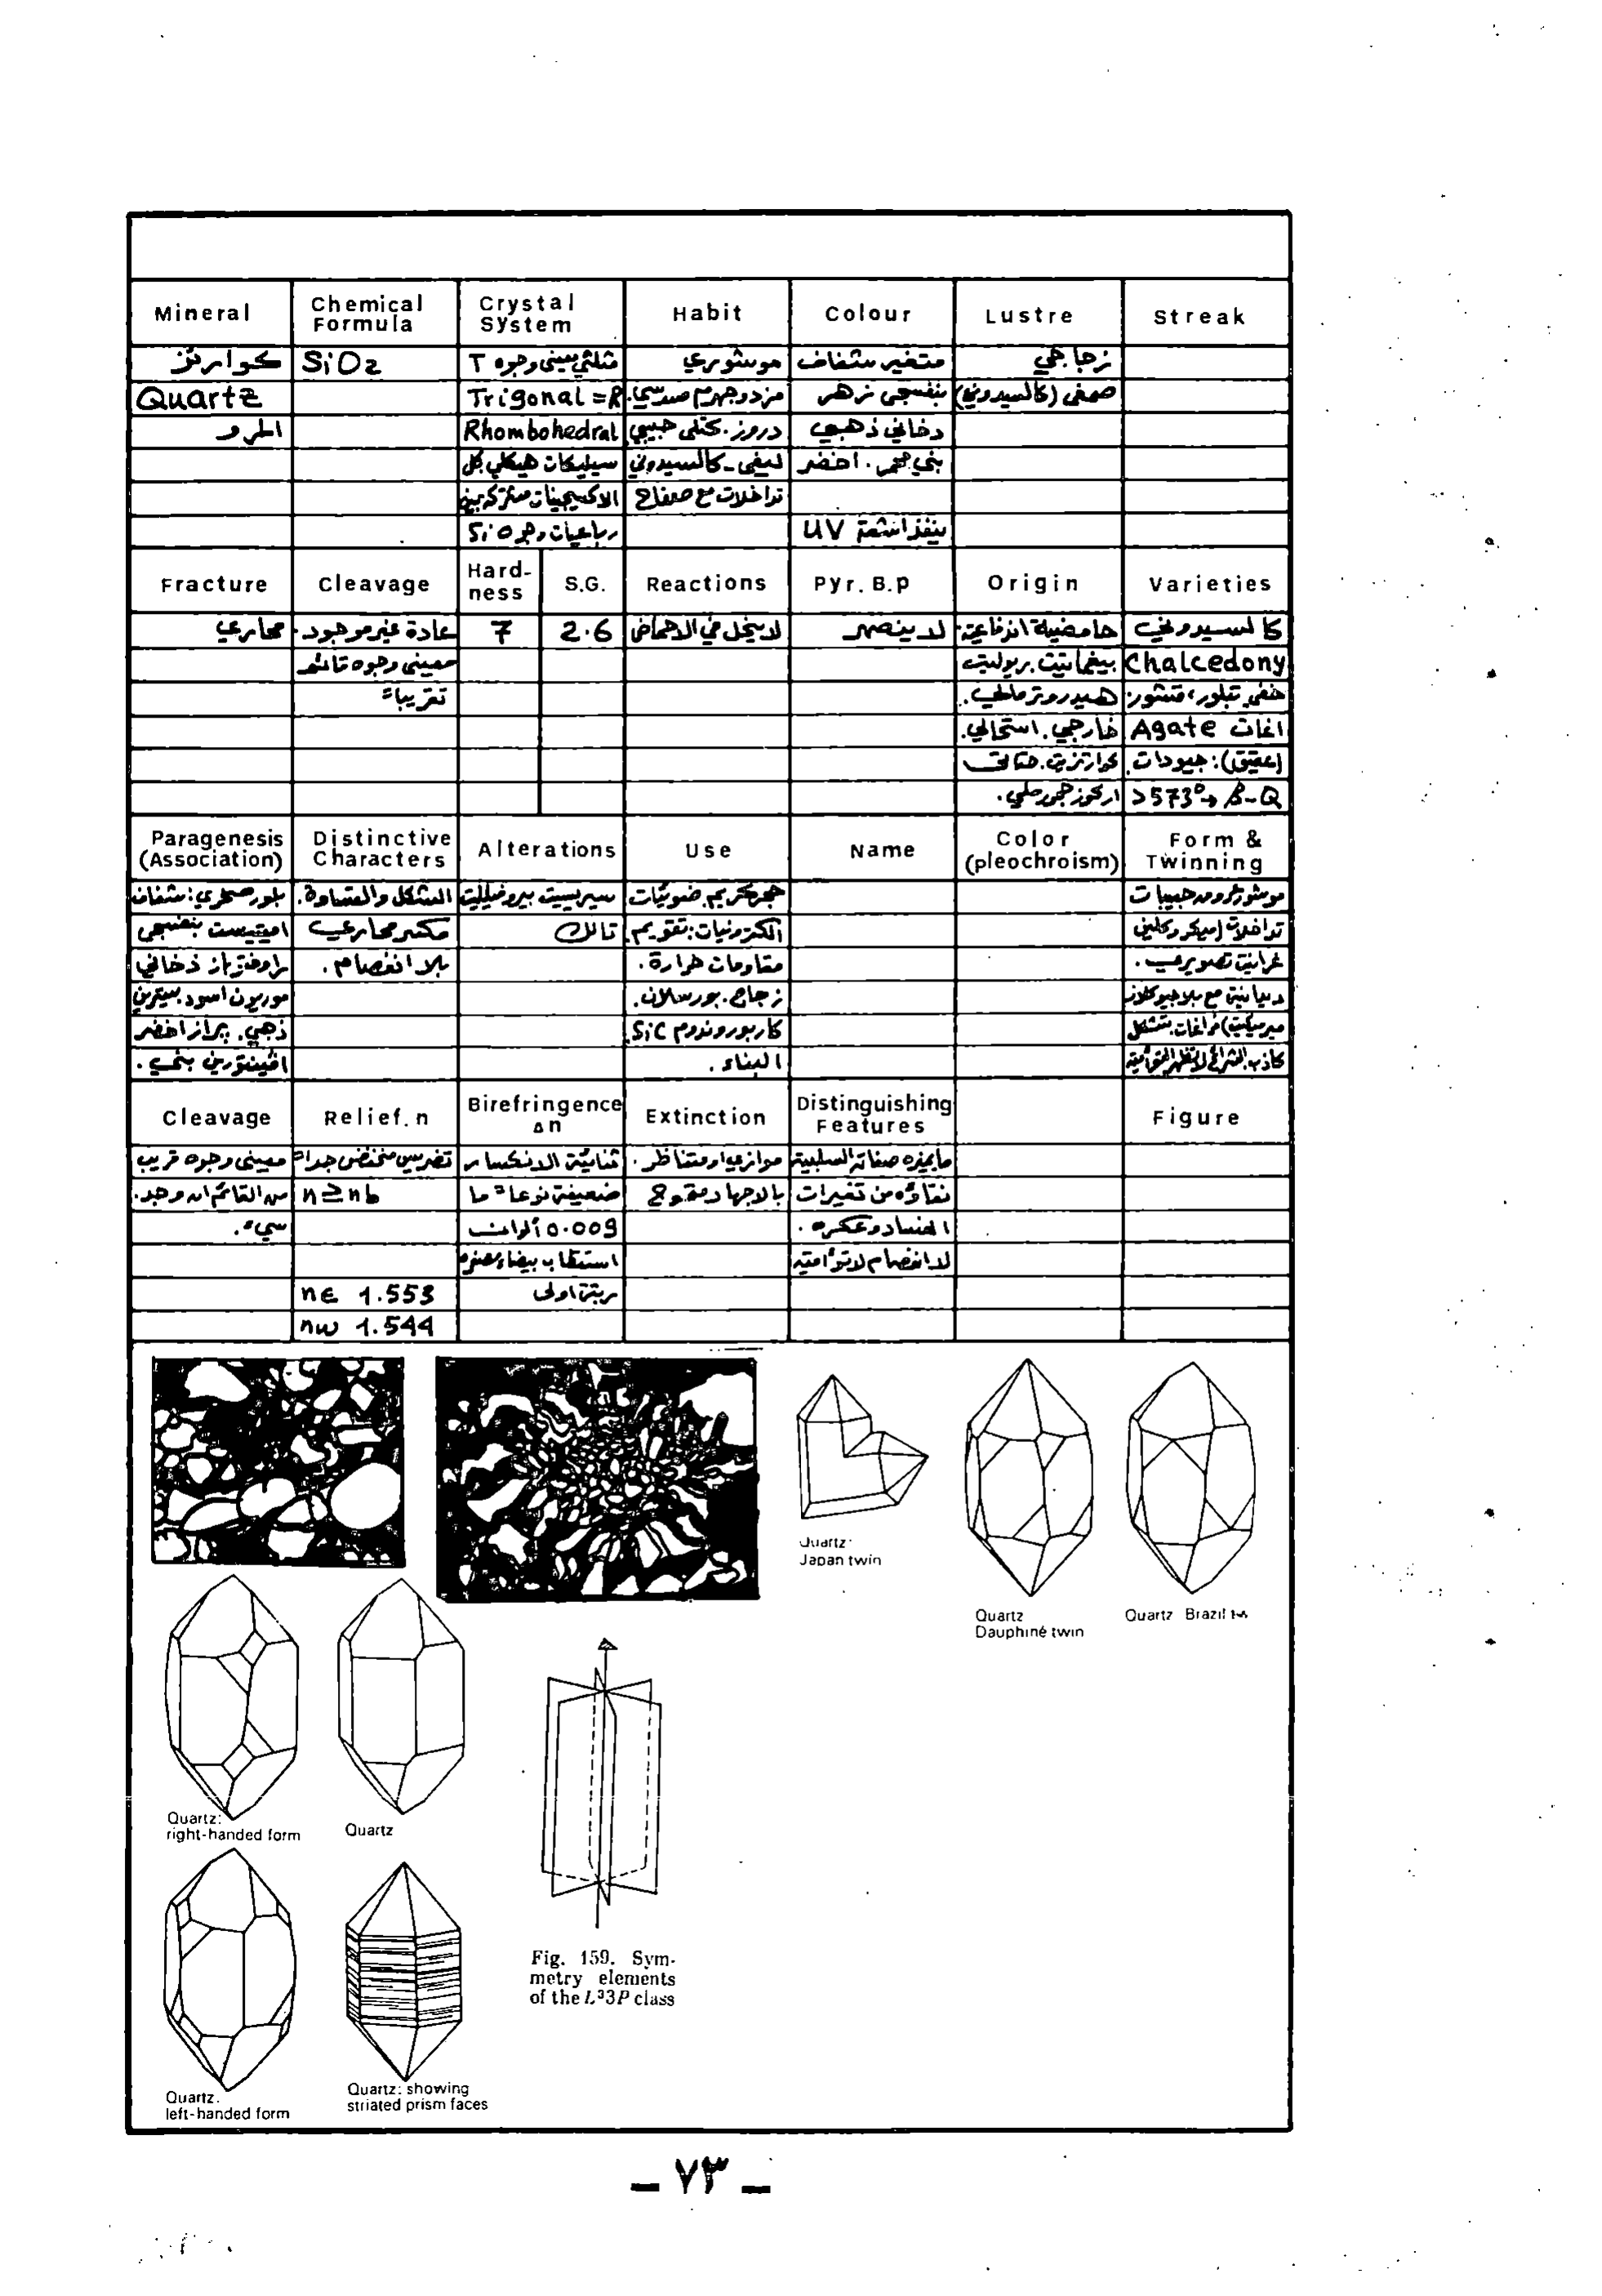 Mineral | Chemical Formula | Crystal System | Habit | Colour | Lustre | Streak
كوارتز | SiO2 | مثلثي معيني وجوه T | موشوري | متغير شفاف | زجاجي
Quartz | Trigonal =R | مزدوج هرم سدسي. | بنفسجي زهر | صمغي (كالسيدوني)
المرو | Rhombohedral | دروز. كتلي حبيبي | دخاني ذهبي
سيليكات هيكلي كل | ليفي - كالسيدوني | بني محمر. اخضر
الاكسجينات مشتركة بين | تداخلات مع صفاح
رباعيات وجوه SiO | ينفذ اشعة UV
Fracture | Cleavage | Hard-ness | S.G. | Reactions | Pyr. B.p | Origin | Varieties
محاري | عادة غير موجود. | 7 | 2.6 | لا ينحل في الاحماض | لا ينصهر | حامضية اندفاعية. | كالسيدوني
معيني وجوه قائم | بيغماتيت. ريوليت | Chalcedony
تقريباً | هيدروترمالي. | خفي تبلور، قشور:
خارجي. استحالي. | اغات Agate
كوارتزيت. | (عقيق): جيودات.
اركوز حجر رملي. | >573° → β-Q
Paragenesis (Association) | Distinctive Characters | Alterations | Use | Name | Color (pleochroism) | Form & Twinning
بلور صخري: شفاف | الشكل والقساوة. | سيريسيت بيروفيلليت | حجر كريم. ضوئيات | حبيبات
اميتيست بنفسجي | مكسر محاري | تالك | الكترونيات: تقويم. | تداخلات (ميكروكلين
دخاني | بلا انفصام. | مقاومات حرارة. | غرانيت تصويري.
موريون اسود. سيترين | زجاج. بورسلان. | مع بلاجيوكلاز
ذهبي. براز اخضر | كاربوروندوم SiC. | ميرميكيت) فراغات. تتشكل
افينتورين بني. | البناء. | كاذب
Cleavage | Relief. n | Birefringence Δn | Extinction | Distinguishing Features | Figure
معيني وجوه قريب | تضريس منخفض جداً | ثنائية الانكسار | موازي او متناظر. | ما يميزه صفاته السلبية
من القائم ان وجد. | n ≥ nb | ضعيفة نوعاً ما | بالاجهاد متموج | نقاؤه من تغيرات
سيء. | 0.009 ألوان | الفساد وعكره.
استقطاب بيضاء صفره | لا انفصام لا توأمية
nε 1.553 | رتبة اولى
nω 1.544
Quartz: Japan twin
Quartz Dauphiné twin
Quartz Brazil
Quartz: right-handed form
Quartz
Quartz. left-handed form
Quartz: showing striated prism faces
Fig. 159. Sym-
metry elements
of the L³3P class
– ٧٣ –